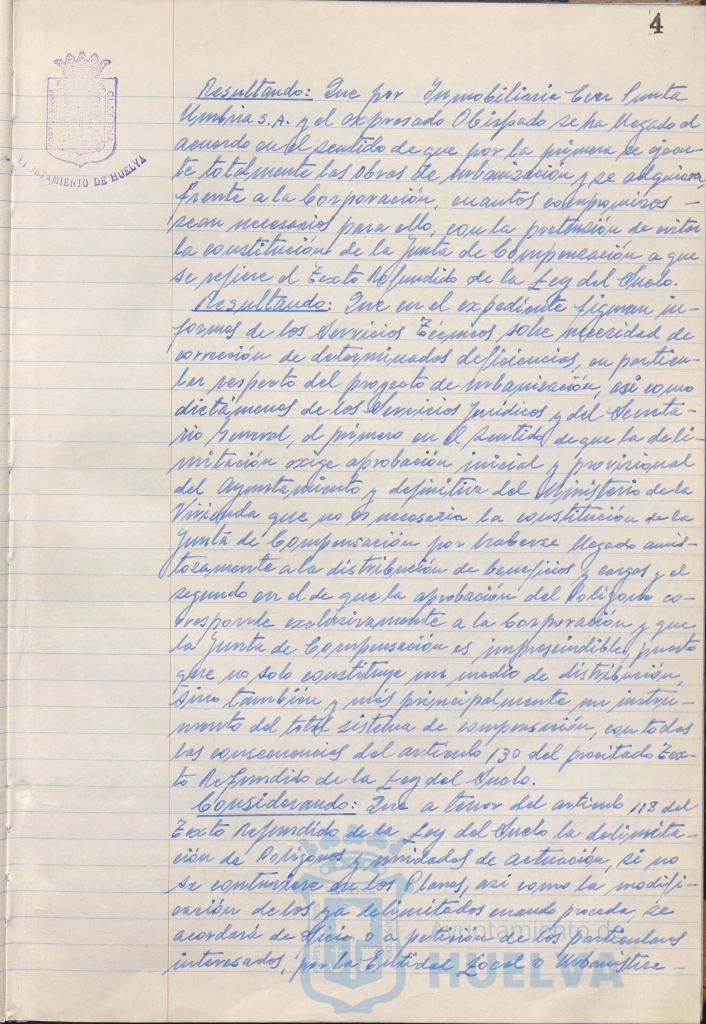 4
AYUNTAMIENTO DE HUELVA
Resultando: Que por Inmobiliaria Ever Punta
Umbria S.A. y el expresado Obispado se ha llegado al
acuerdo en el sentido de que por la primera se ejecu-
te totalmente las obras de urbanización y se adquiera,
frente a la Corporación, cuantos compromisos
sean necesarios para ello, con la pretensión de evitar
la constitución de la Junta de Compensación a que
se refiere el Texto Refundido de la Ley del Suelo.
Resultando: Que en el expediente figuran in-
formes de los Servicios Técnicos sobre necesidad de
corrección de determinadas deficiencias, en particu-
lar respecto del proyecto de urbanización, asi como
dictámenes de los Servicios Jurídicos y del Secreta-
rio General, el primero en el sentido de que la deli-
mitación exige aprobación inicial y provisional
del Ayuntamiento y definitiva del Ministerio de la
Vivienda que no es necesaria la constitución de la
Junta de Compensación por haberse llegado amis-
tosamente a la distribución de beneficios y cargas y el
segundo en el de que la aprobación del Polígono co-
rresponde exclusivamente a la Corporación y que
la Junta de Compensación es imprescindible, puesto
que no solo constituye un medio de distribución,
sino también y más principalmente un instru-
mento del total sistema de compensación, con todas
las consecuencias del articulo 130 del precitado Tex-
to Refundido de la Ley del Suelo.
Considerando: Que a tenor del articulo 118 del
Texto Refundido de la Ley del Suelo la delimita-
ción de Polígonos y unidades de actuación, si no
se contuviere en los Planes, asi como la modifi-
cación de los ya delimitados cuando proceda, se
acordará de oficio o a petición de los particulares
interesados, por la Entidad Local o Urbanística
Ayuntamiento de
HUELVA